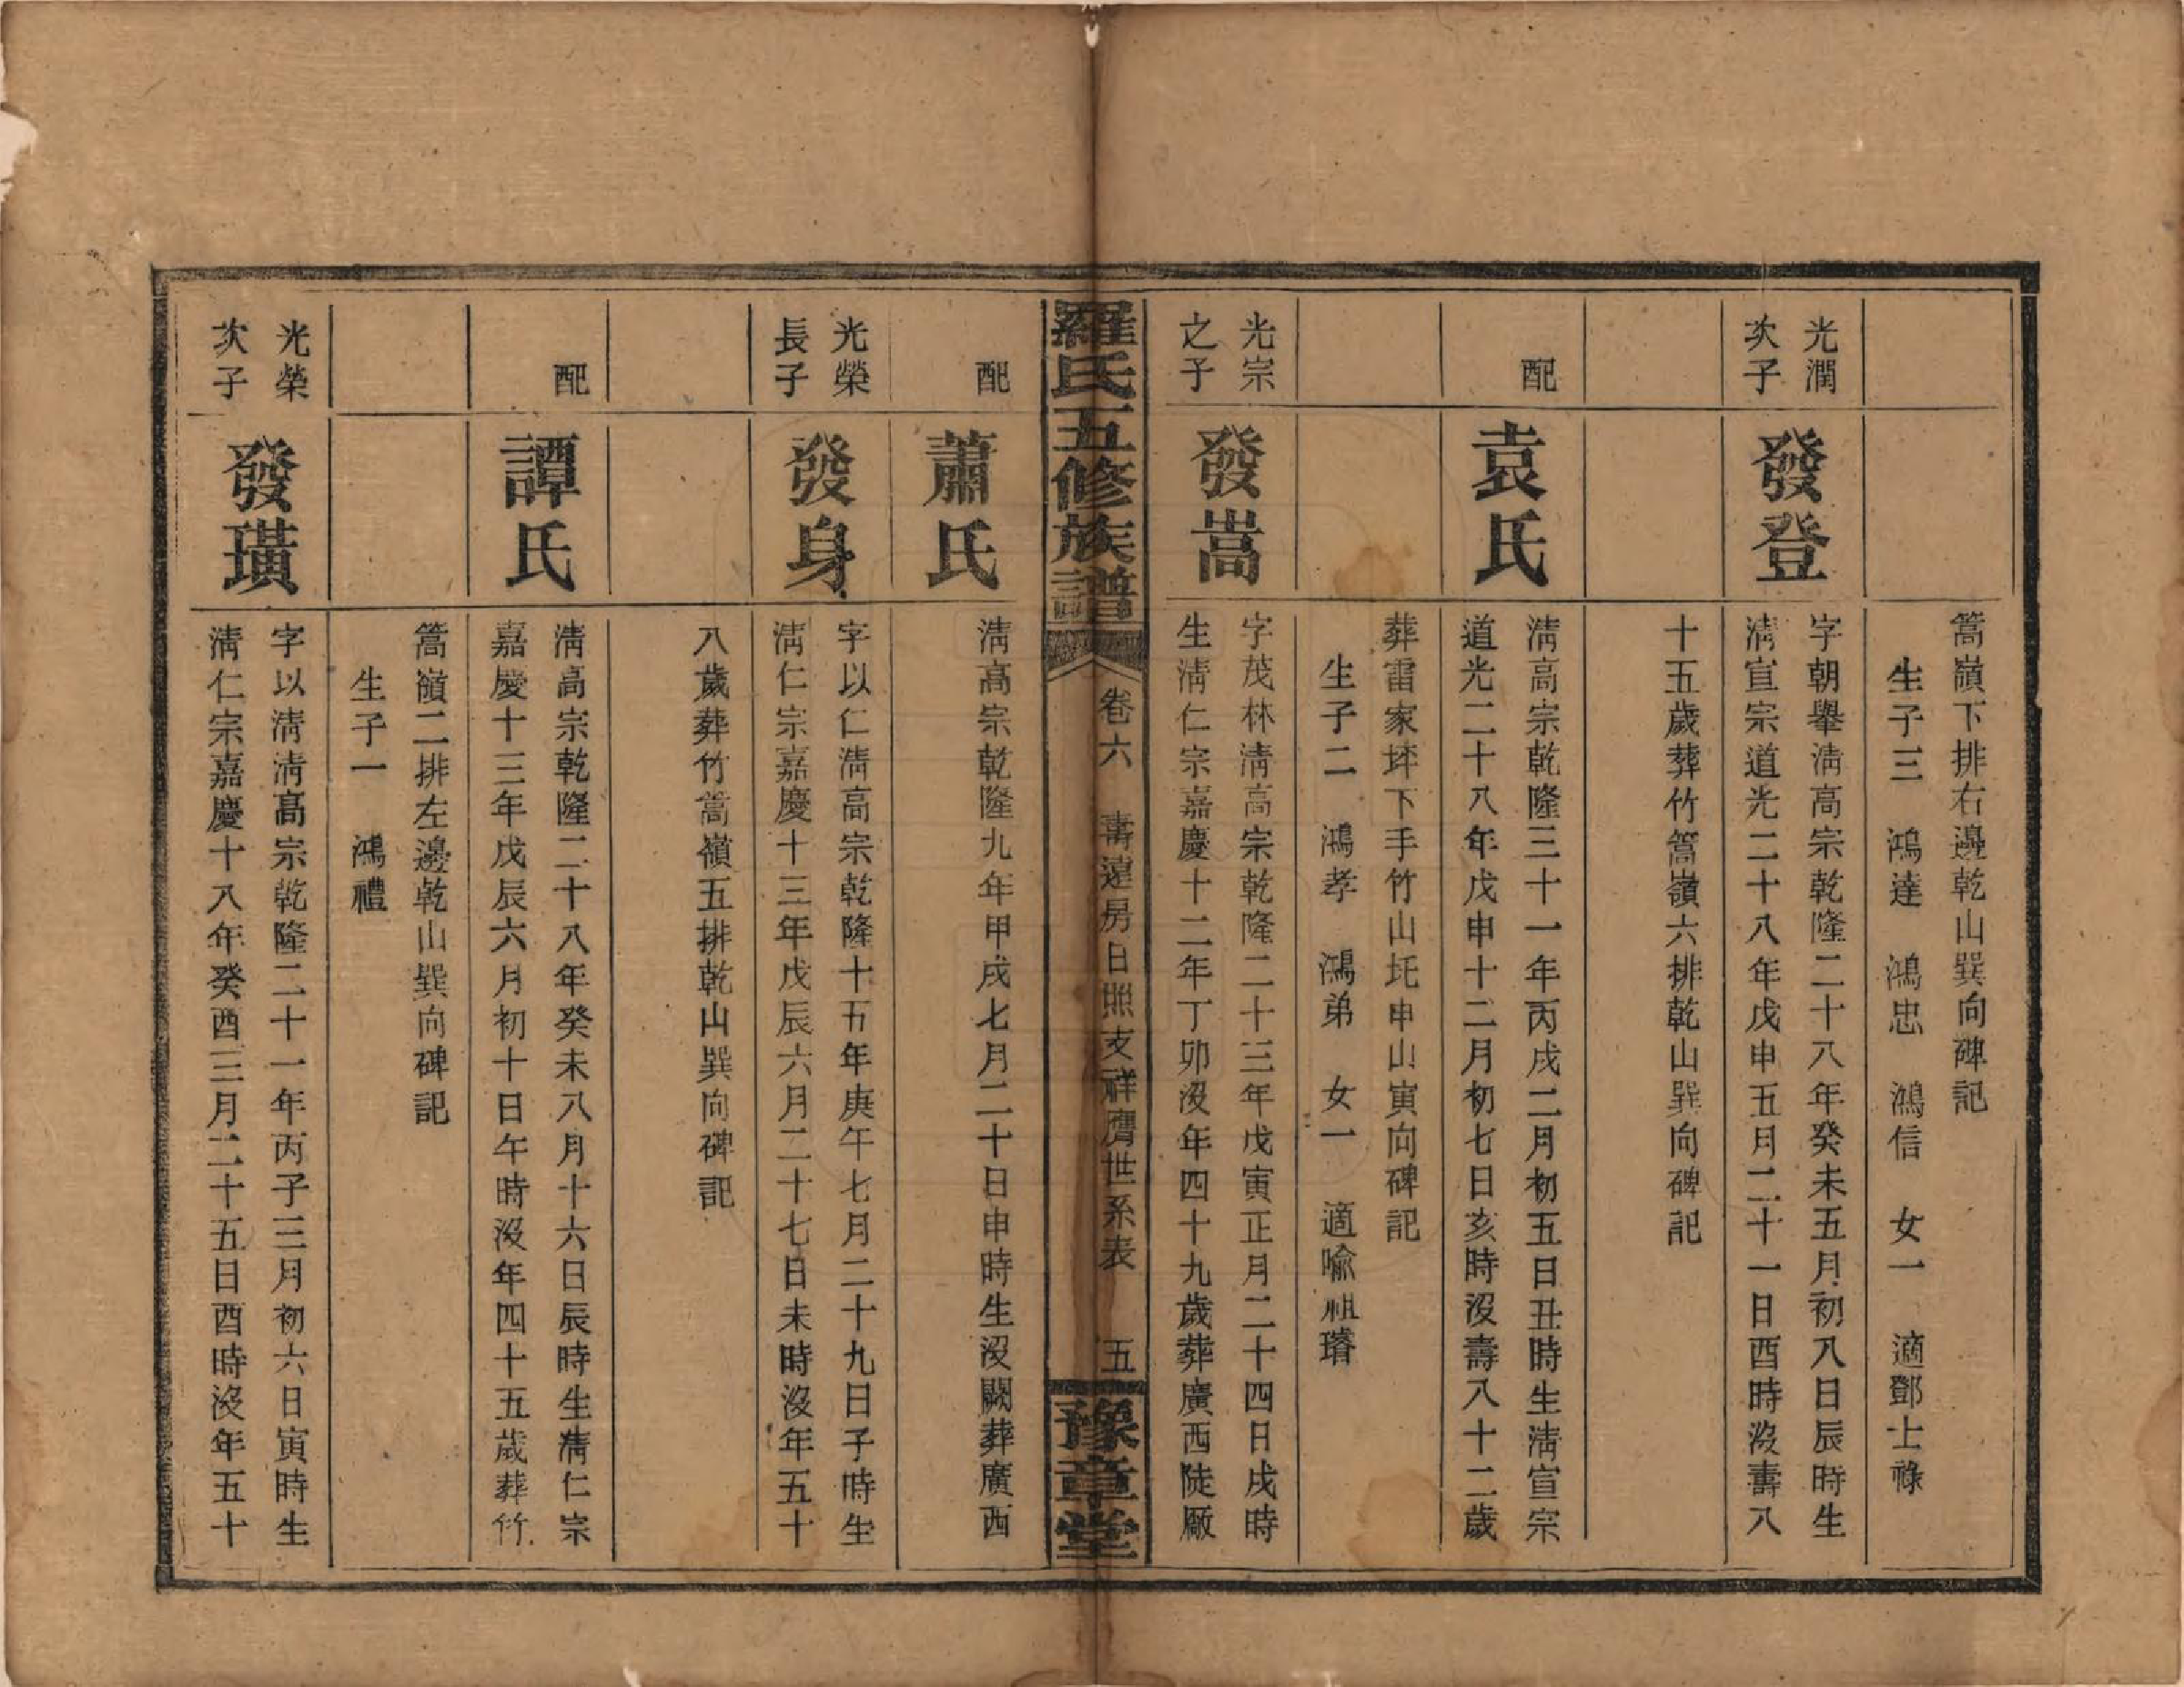 篙嶺下排右邊乾山巽向碑記
生子三　鴻達　鴻忠　鴻信　女一　適鄧士祿
光潤
次子
發登
字朝舉淸高宗乾隆二十八年癸未五月初八日辰時生
淸宣宗道光二十八年戊申五月二十一日酉時沒壽八
十五歲葬竹篙嶺六排乾山巽向碑記
配
袁氏
淸高宗乾隆三十一年丙戌二月初五日丑時生淸宣宗
道光二十八年戊申十二月初七日亥時沒壽八十二歲
葬雷家坪下手竹山圫申山寅向碑記
生子二　鴻孝　鴻弟　女一　適喻祖璿
光宗
之子
發嵩
字茂林淸高宗乾隆二十三年戊寅正月二十四日戌時
生淸仁宗嘉慶十二年丁卯沒年四十九歲葬廣西陡厰
羅氏五修族譜
卷六　壽達房日照支祥膺世系表　五
豫章堂
配
蕭氏
淸高宗乾隆九年甲戌七月二十日申時生沒闕葬廣西
光榮
長子
發身
字以仁淸高宗乾隆十五年庚午七月二十九日子時生
淸仁宗嘉慶十三年戊辰六月二十七日未時沒年五十
八歲葬竹篙嶺五排乾山巽向碑記
配
譚氏
淸高宗乾隆二十八年癸未八月十六日辰時生淸仁宗
嘉慶十三年戊辰六月初十日午時沒年四十五歲葬竹
篙嶺二排左邊乾山巽向碑記
生子一　鴻禮
光榮
次子
發璜
字以淸淸高宗乾隆二十一年丙子三月初六日寅時生
淸仁宗嘉慶十八年癸酉三月二十五日酉時沒年五十